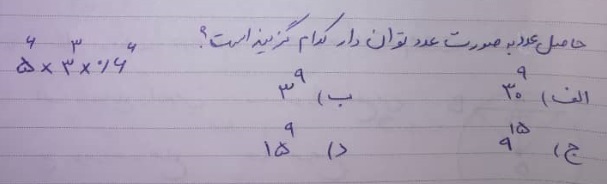 حاصل عدد به صورت عدد توان دار کدام گزینه است؟
۵⁶ × ۳³ × ۰/۶⁶
الف) ۳۰⁹ ب) ۳⁹
ج) ۹¹⁵ د) ۱۵⁹